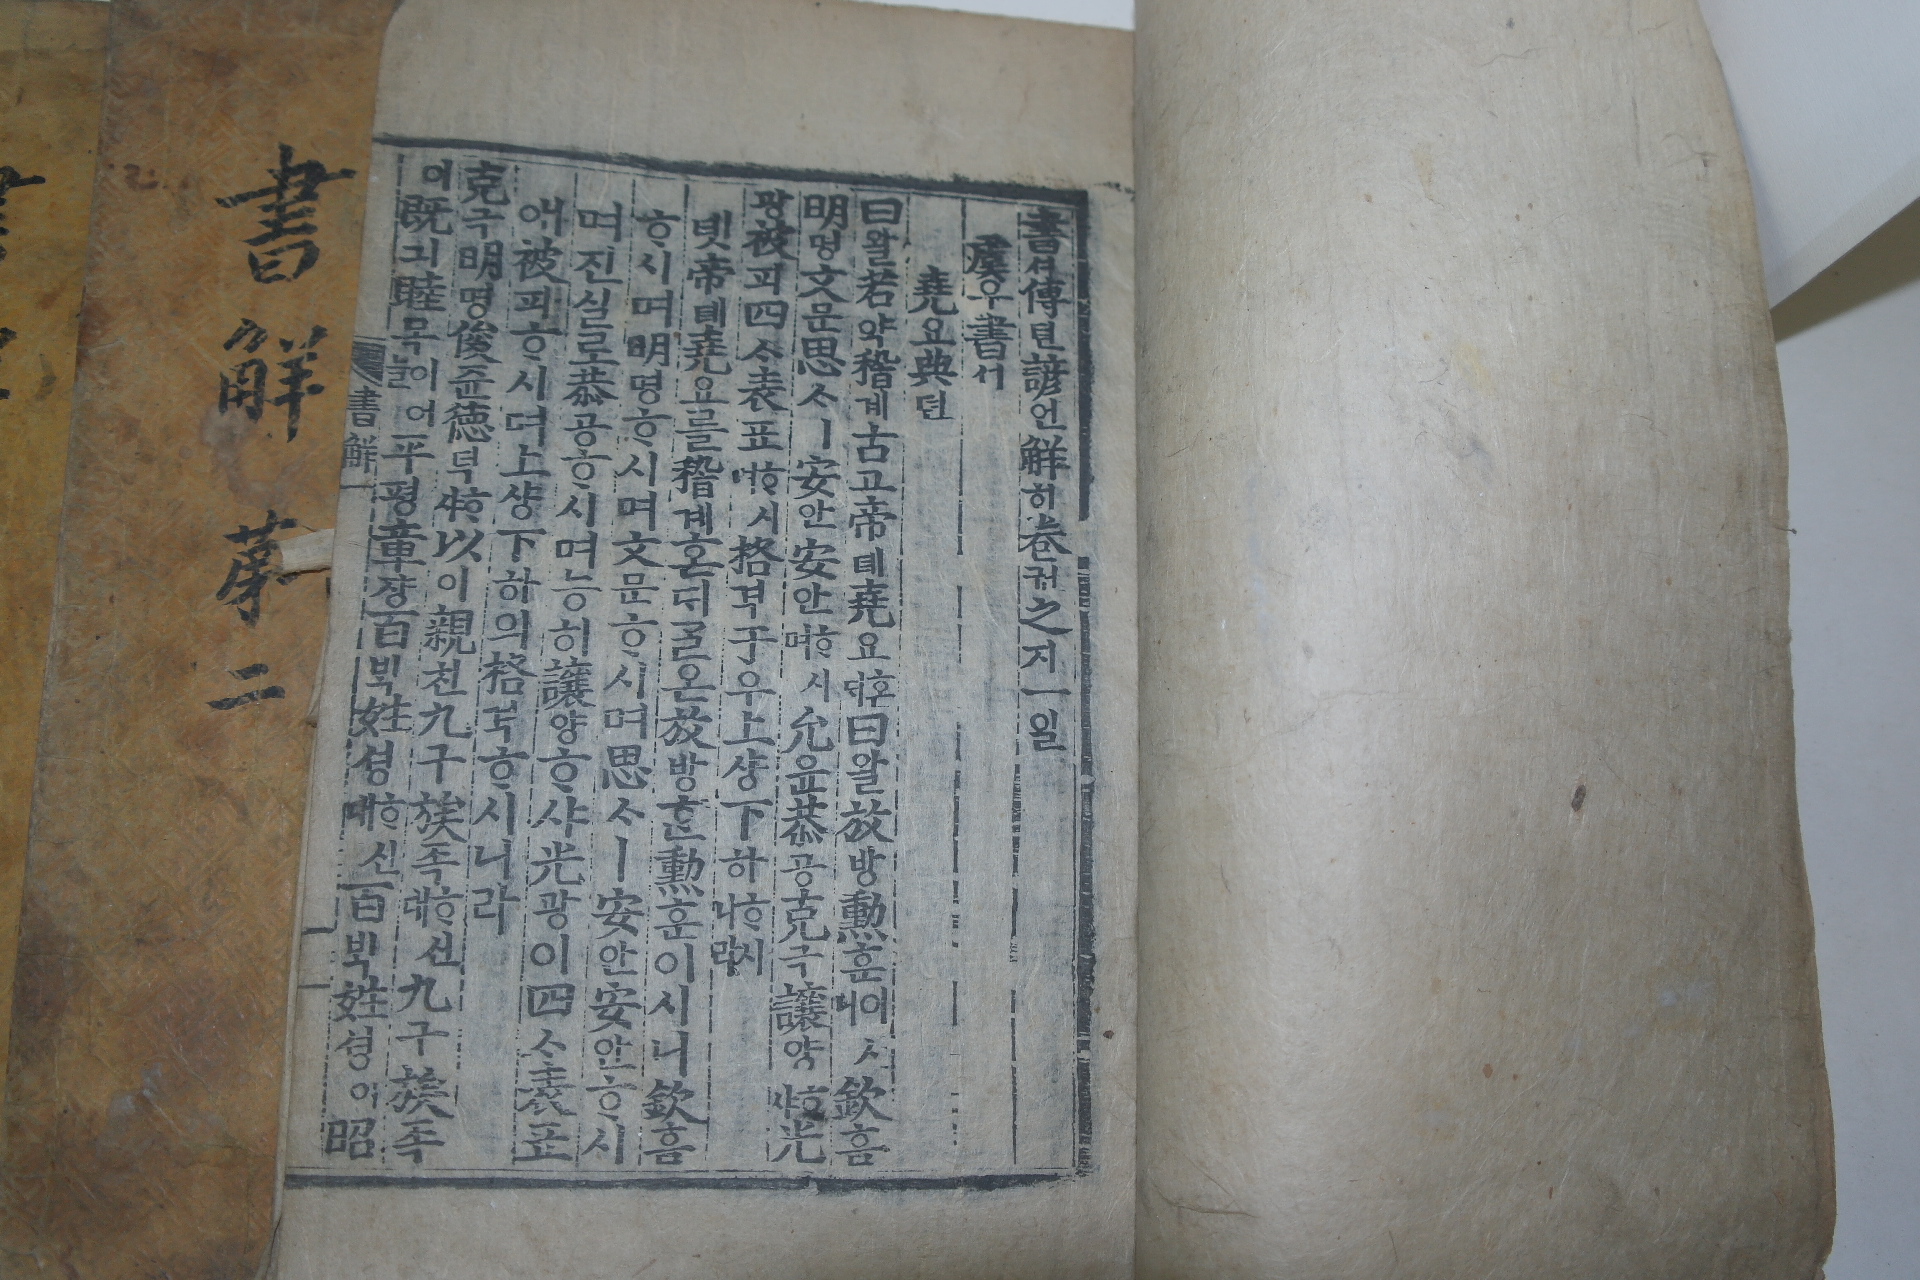 書셔傳뎐諺언觧ᄒᆡ卷권之지一일
虞우書셔
堯요典뎐
曰왈若약稽계古고帝뎨堯요혼ᄃᆡ曰왈放방勳훈이시니欽흠
明명文문思ᄉᆞㅣ安안安안ᄒᆞ시며允윤恭공克극讓양ᄒᆞ샤光
광被피四ᄉᆞ表표ᄒᆞ시며格격于우上샹下하ᄒᆞ시니라
녯帝뎨堯요를稽계혼ᄃᆡᄀᆞᆯ온放방勳훈이시니欽흠
ᄒᆞ시며明명ᄒᆞ시며文문ᄒᆞ시며思ᄉᆞㅣ安안安안ᄒᆞ시
며진실로恭공ᄒᆞ시며능히讓양ᄒᆞ샤光광이四ᄉᆞ表표
애被피ᄒᆞ시며上샹下하의格격ᄒᆞ시니라
克극明명俊쥰德덕ᄒᆞ샤以이親친九구族족ᄒᆞ신대九구族족
이旣긔睦목이어늘平평章쟝百ᄇᆡᆨ姓셩ᄒᆞ신대百ᄇᆡᆨ姓셩이昭
書觧
書觧 第二